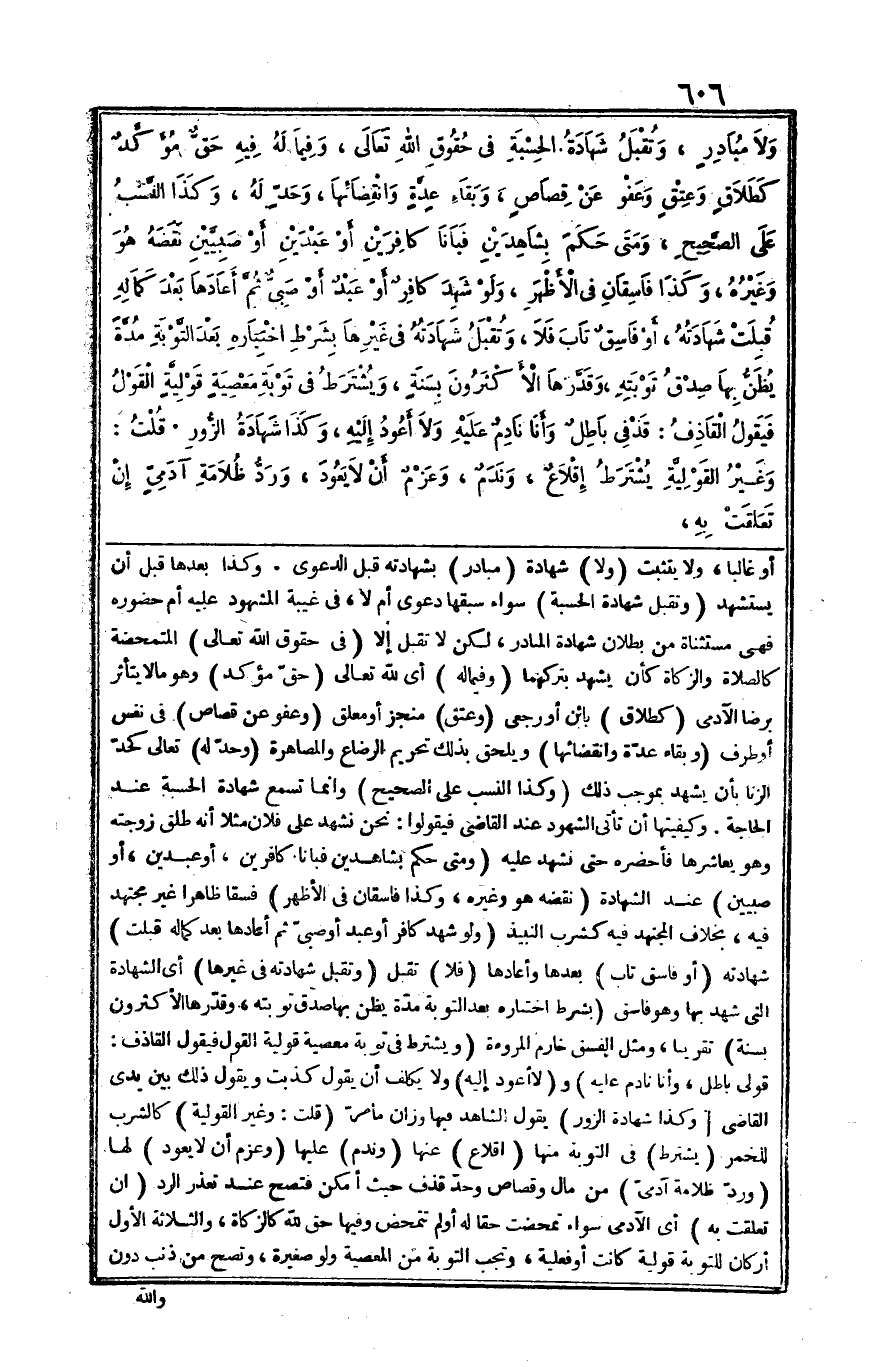 ٦٠٦
وَلَا مُبَادِرٍ ، وَتُقْبَلُ شَهَادَةُ الْحِسْبَةِ فِى حُقُوقِ اللهِ تَعَالَى ، وَفِيمَا لَهُ فِيهِ حَقٌّ مُؤَكَّدٌ
كَطَلَاقٍ وَعِتْقٍ وَعَفْوٍ عَنْ قِصَاصٍ ، وَبَقَاءِ عِدَّةٍ وَانْقِضَائِهَا ، وَحَدٍّ لَهُ ، وَكَذَا النَّسَبُ
عَلَى الصَّحِيحِ ، وَمَتَى حَكَمَ بِشَاهِدَيْنِ فَبَانَا كَافِرَيْنِ أَوْ عَبْدَيْنِ أَوْ صَبِيَّيْنِ نَقَضَهُ هُوَ
وَغَيْرُهُ ، وَكَذَا فَاسِقَانِ فِى الْأَظْهَرِ ، وَلَوْ شَهِدَ كَافِرٌ أَوْ عَبْدٌ أَوْ صَبِىٌّ ثُمَّ أَعَادَهَا بَعْدَ كَمَالِهِ
قُبِلَتْ شَهَادَتُهُ ، أَوْ فَاسِقٌ تَابَ فَلَا ، وَتُقْبَلُ شَهَادَتُهُ فِى غَيْرِهَا بِشَرْطِ اخْتِبَارِهِ بَعْدَ التَّوْبَةِ مُدَّةً
يُظَنُّ بِهَا صِدْقُ تَوْبَتِهِ ، وَقَدَّرَهَا الْأَكْثَرُونَ بِسَنَةٍ ، وَيُشْتَرَطُ فِى تَوْبَةِ مَعْصِيَةٍ قَوْلِيَّةٍ الْقَوْلُ
فَيَقُولُ الْقَاذِفُ : قَذْفِى بَاطِلٌ وَأَنَا نَادِمٌ عَلَيْهِ وَلَا أَعُودُ إِلَيْهِ ، وَكَذَا شَهَادَةُ الزُّورِ . قُلْتُ :
وَغَيْرُ الْقَوْلِيَّةِ يُشْتَرَطُ إِقْلَاعٌ ، وَنَدَمٌ ، وَعَزْمٌ أَنْ لَا يَعُودَ ، وَرَدُّ ظُلَامَةِ آدَمِىٍّ إِنْ
تَعَلَّقَتْ بِهِ ،
أو غالبا ، ولا يتثبت (ولا) شهادة (مبادر) بشهادته قبل الدعوى . وكذا بعدها قبل أن
يستشهد (وتقبل شهادة الحسبة) سواء سبقها دعوى أم لا ، فى غيبة المشهود عليه أم حضوره
فهى مستثناة من بطلان شهادة المبادر ، لكن لا تقبل إلا (فى حقوق الله تعالى) المتمحضة
كالصلاة والزكاة كأن يشهد بتركهما (وفيما له) أى لله تعالى (حق مؤكد) وهو مالا يتأثر
برضا الآدمى (كطلاق) بائن أو رجعى (وعتق) منجز أو معلق (وعفو عن قصاص) فى نفس
أو طرف (وبقاء عدّة وانقضائها) ويلحق بذلك تحريم الرضاع والمصاهرة (وحدّ له) تعالى كحدّ
الزنا بأن يشهد بموجب ذلك (وكذا النسب على الصحيح) وانما تسمع شهادة الحسبة عند
الحاجة . وكيفيتها أن تأتى الشهود عند القاضى فيقولوا : نحن نشهد على فلان مثلا أنه طلق زوجته
وهو يعاشرها فأحضره حتى نشهد عليه (ومتى حكم بشاهدين فبانا كافرين ، أو عبدين ، أو
صبيين) عند الشهادة (نقضه هو وغيره ، وكذا فاسقان فى الأظهر) فسقا ظاهرا غير مجتهد
فيه ، بخلاف المجتهد فيه كشرب النبيذ (ولو شهد كافر أو عبد أو صبىّ ثم أعادها بعد كماله قبلت)
شهادته (أو فاسق تاب) بعدها وأعادها (فلا) تقبل (وتقبل شهادته فى غيرها) أى الشهادة
التى شهد بها وهو فاسق (بشرط اختباره بعد التوبة مدّة يظن بها صدق توبته ، وقدّرها الأكثرون
بسنة) تقريبا ، ومثل الفسق خارم المروءة (ويشترط فى توبة معصية قولية القول فيقول القاذف :
قولى باطل ، وأنا نادم عليه) و (لا أعود إليه) ولا يكلف أن يقول كذبت ويقول ذلك بين يدى
القاضى [وكذا شهادة الزور) يقول الشاهد فيها وزان مامرّ (قلت : وغير القولية) كالشرب
للخمر (يشترط) فى التوبة منها (اقلاع) عنها (وندم) عليها (وعزم أن لا يعود) لها
(وردّ ظلامة آدمىّ) من مال وقصاص وحدّ قذف حيث أمكن فتصح عند تعذر الرد (ان
تعلقت به) أى الآدمى سواء تمحضت حقا له أو لم تتمحض وفيها حق لله كالزكاة ، والثلاثة الأول
أركان للتوبة قولية كانت أو فعلية ، وتجب التوبة من المعصية ولو صغيرة ، وتصح من ذنب دون
والله